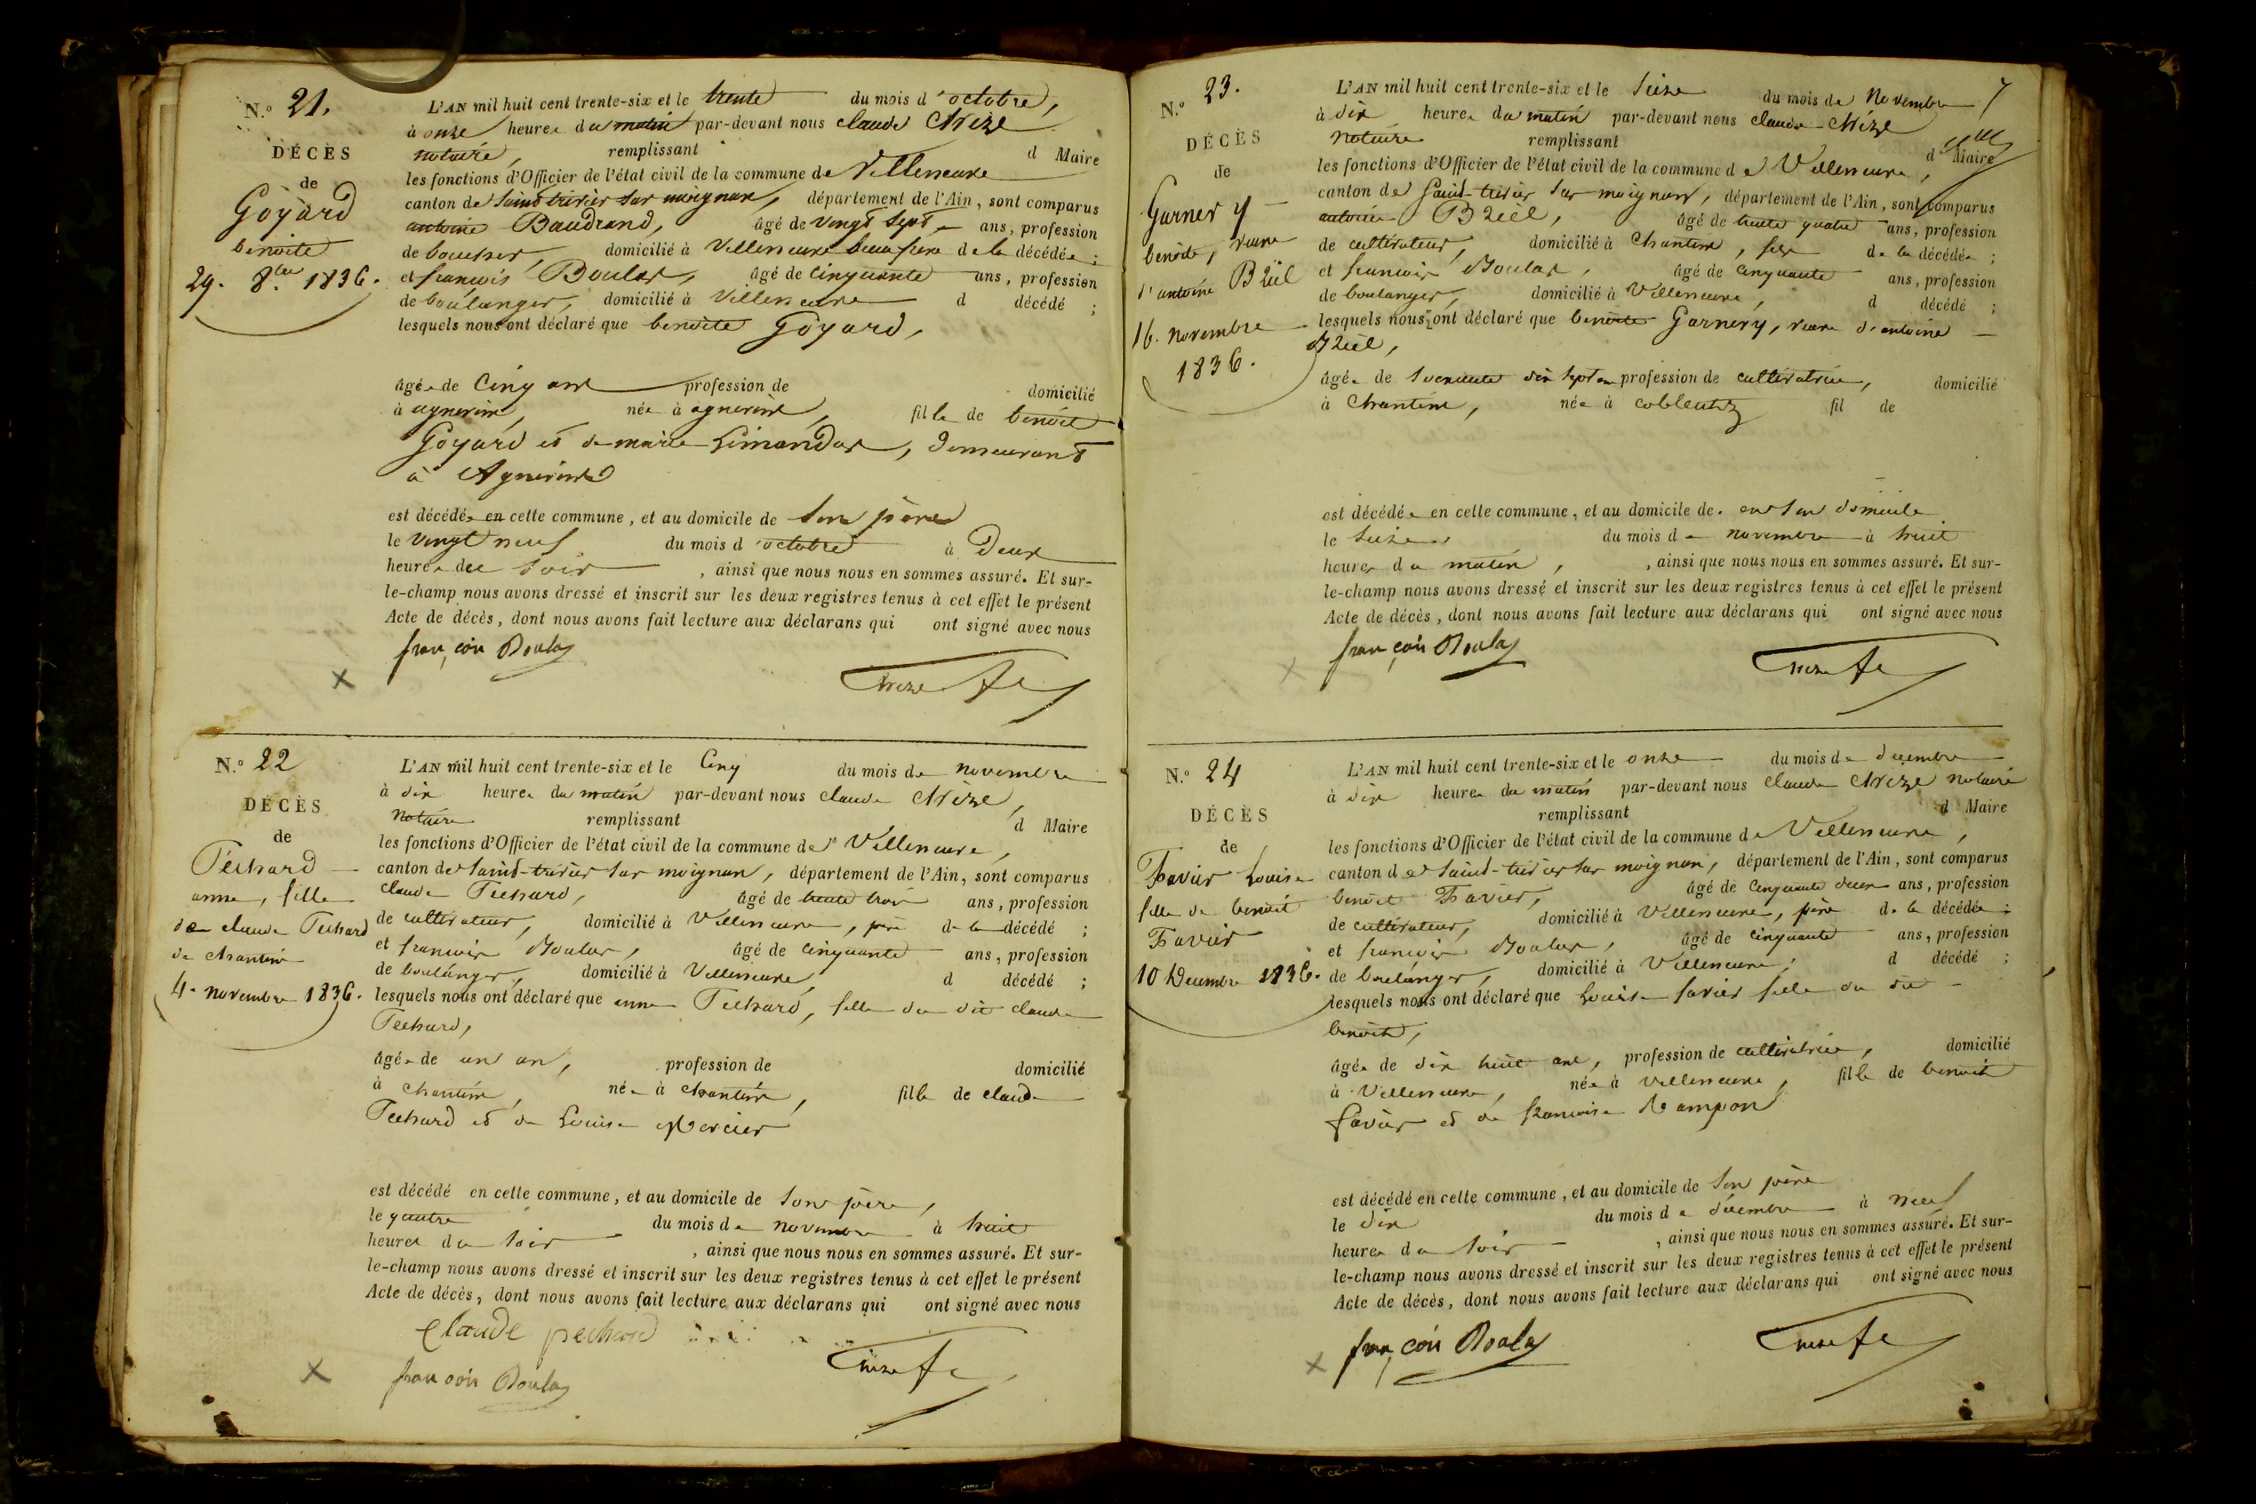 N.° 21.
DÉCÈS
de
Goyard
benoite
29. 8.bre 1836.
L'AN mil huit cent trente-six et le trente du mois d'octobre,
à onze heures du matin par-devant nous claude
notaire, remplissant d Maire
les fonctions d'Officier de l'état civil de la commune de Villeneuve
canton de Saint-trivier sur moignan, département de l'Ain, sont comparus
antoine Baudrand, âgé de vingt sept ans, profession
de domicilié à Villeneuve beau frere de la décédée ;
et françois Boulas, âgé de cinquante ans, profession
de boulanger, domicilié à Villeneuve d décédé ;
lesquels nous ont déclaré que benoite Goyard,
âgée de cinq ans profession de domicilié
à agnereins, née à agnereins, fille de benoit
Goyard et de marie Limandas, demeurant
à Agnereins
est décédée en cette commune, et au domicile de son père
le vingt neuf du mois d'octobre à Deux
heures du soir, ainsi que nous nous en sommes assuré. Et sur-
le-champ nous avons dressé et inscrit sur les deux registres tenus à cet effet le présent
Acte de décès, dont nous avons fait lecture aux déclarans qui ont signé avec nous
françois Boulas
N.° 22
DÉCÈS
de
Pechard
anne, fille
de claude Pechard
de chanteins
4. novembre 1836.
L'AN mil huit cent trente-six et le cinq du mois de novembre
à dix heures du matin par-devant nous claude
notaire remplissant d Maire
les fonctions d'Officier de l'état civil de la commune de Villeneuve,
canton de Saint-trivier sur moignan, département de l'Ain, sont comparus
claude Pechard, âgé de trente trois ans, profession
de cultivateur, domicilié à Villeneuve, père de la décédé ;
et françois Boulas, âgé de cinquante ans, profession
de boulanger, domicilié à Villeneuve, d décédé ;
lesquels nous ont déclaré que anne Pechard, fille du dit claude
Pechard,
âgée de un an, profession de domicilié
à chanteins, née à chanteins, fille de claude
Pechard et de Louise Mercier
est décédé en cette commune, et au domicile de son père,
le quatre du mois de novembre à huit
heures du soir, ainsi que nous nous en sommes assuré. Et sur-
le-champ nous avons dressé et inscrit sur les deux registres tenus à cet effet le présent
Acte de décès, dont nous avons fait lecture aux déclarans qui ont signé avec nous
Claude pechard
françois Boulas
7
N.° 23.
DÉCÈS
de
Garnery
benoite, veuve
d'antoine Brüel
16. novembre
1836.
L'AN mil huit cent trente-six et le seize du mois de novembre
à dix heures du matin par-devant nous claude
notaire remplissant d Maire
les fonctions d'Officier de l'état civil de la commune de Villeneuve,
canton de Saint-trivier sur moignan, département de l'Ain, sont comparus
antoine Brüel, âgé de trente quatre ans, profession
de cultivateur, domicilié à chanteins, fils de la décédée ;
et françois Boulas, âgé de cinquante ans, profession
de boulanger, domicilié à Villeneuve, d décédé ;
lesquels nous ont déclaré que benoite Garnery, veuve d'antoine
Brüel,
âgée de soixante dix sept ans profession de cultivatrice, domicilié
à chanteins, née à coblentz fil de
est décédée en cette commune, et au domicile de. en son domicile
le seize du mois de novembre à huit
heures du matin, ainsi que nous nous en sommes assuré. Et sur-
le-champ nous avons dressé et inscrit sur les deux registres tenus à cet effet le présent
Acte de décès, dont nous avons fait lecture aux déclarans qui ont signé avec nous
françois Boulas
N.° 24
DÉCÈS
de
Favier Louise
fille de benoit
Favier
10 Decembre 1836.
L'AN mil huit cent trente-six et le onze du mois de decembre
à dix heures du matin par-devant nous claude notaire
remplissant d Maire
les fonctions d'Officier de l'état civil de la commune de Villeneuve,
canton de Saint-trivier sur moignan, département de l'Ain, sont comparus
benoit Favier, âgé de cinquante deux ans, profession
de cultivateur, domicilié à Villeneuve, père de la décédée ;
et françois Boulas, âgé de cinquante ans, profession
de boulanger, domicilié à Villeneuve, d décédé ;
lesquels nous ont déclaré que Louise favier fille du dit
benoit,
âgée de dix huit ans, profession de cultivatrice, domicilié
à Villeneuve, née à villeneuve, fille de benoit
favier et de françoise Rampon
est décédé en cette commune, et au domicile de son père
le dix du mois de décembre à neuf
heures du soir, ainsi que nous nous en sommes assuré. Et sur-
le-champ nous avons dressé et inscrit sur les deux registres tenus à cet effet le présent
Acte de décès, dont nous avons fait lecture aux déclarans qui ont signé avec nous
françois Boulas